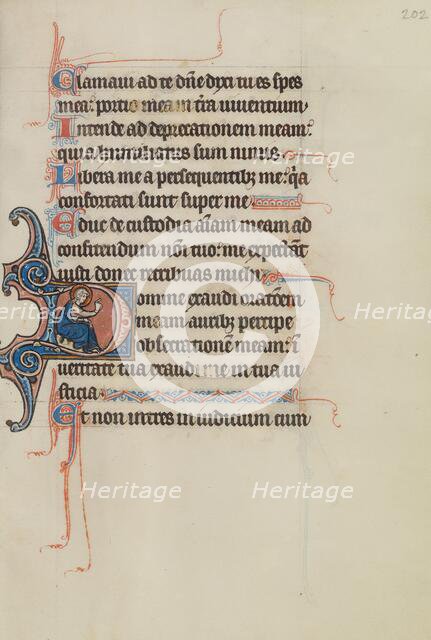 202
Clamaui ad te dñe dixi tu es spes
mea: portio mea in t̃ra uiuentium
Intende ad deprecationem meam:
quia humiliatus sum nimis
Libera me a persequentibȝ me: q̃a
confortati sunt super me
Educ de custodia aĩam meam ad
confitendum noĩ tuo: me expectãt
iusti donec retribuas michi
Domine exaudi oratõem
meam auribȝ percipe
obsecrationẽ meam: ĩ
ueritate tua exaudi me in tua iu
sticia
Et non intres in iudicium cum
Heritage
Heritage
Heritage
Heritage
Heritage
Heritage
Heritage
Heritage
Heritage